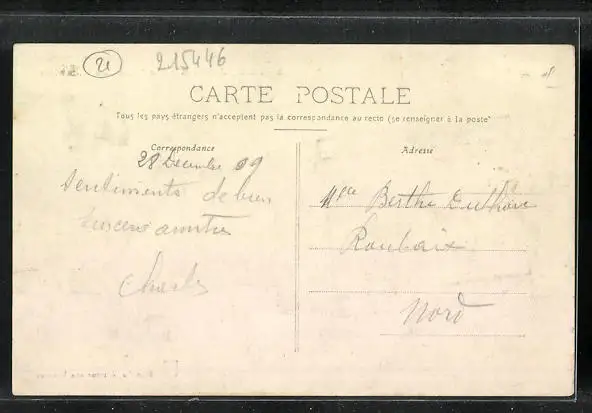 21
215446
CARTE POSTALE
Tous les pays étrangers n'acceptent pas la correspondance au recto (se renseigner à la poste)
Correspondance
28 Décembre 09
Sentiments de bien
sincère amitié
Charles
Adresse
Mlle Berthe
Roubaix
Nord